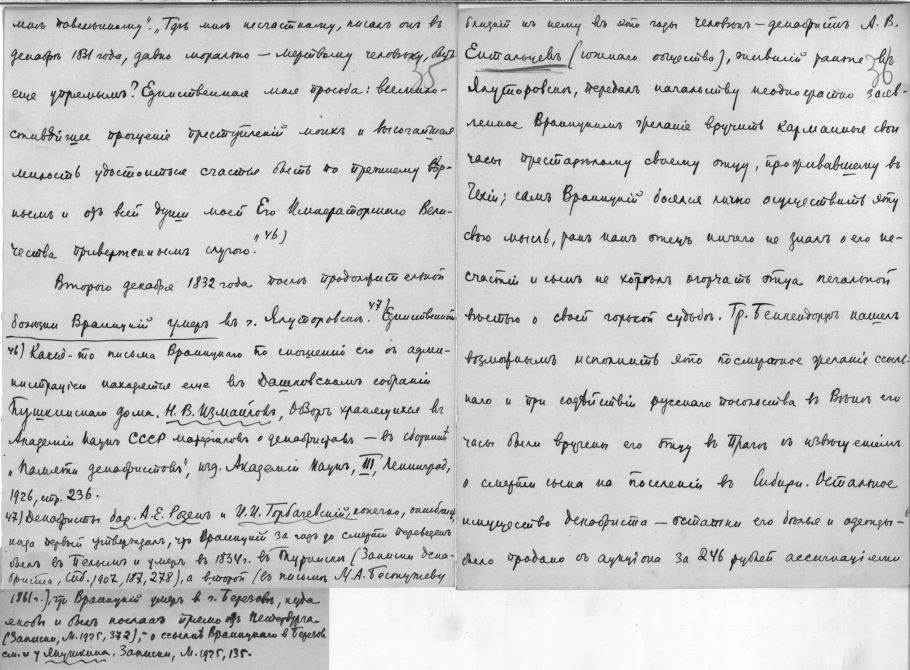 милъ повелѣнному". "Гдѣ мнѣ несчастному, писалъ онъ въ
декабрѣ 1831 года, давно морально — мертвому человѣку, быть
35
еще упрямымъ? Единственная моя просьба: всемило-
стивѣйшее прощеніе преступленій моихъ и высочайшая
милость удостоиться счастья быть по прежнему вѣр-
нымъ и отъ всей души моей Его Императорскаго Вели-
чества приверженнымъ слугою." 46)
Второго декабря 1832 года послѣ продолжительной
болѣзни Враницкій умеръ въ г. Ялуторовскѣ. 47) Единственный
46) Какія-то письма Враницкаго по сношенію его съ адми-
нистраціею находятся еще въ Дашковскомъ собраніи
Пушкинскаго дома. Н. В. Измайловъ, Обзоръ хранящихся въ
Академіи Наукъ СССР матеріаловъ о декабристахъ — въ сборникѣ
"Памяти декабристовъ", изд. Академіи Наукъ, III, Ленинградъ,
1926, стр. 236.
47) Декабристы бар. А. Е. Розенъ и И. И. Горбачевскій, конечно, ошиблись,
когда первый утверждалъ, что Враницкій за годъ до смерти переведенъ
былъ въ Пелымъ и умеръ въ 1834 г. въ Туринскѣ (Записки дека-
бриста, Спб. 1907, 187, 278), а второй (въ письмѣ М. А. Бестужеву
1861 г.), что Враницкій умеръ въ г. Березовѣ, куда
якобы и былъ посланъ прямо изъ Петербурга
(Записки, М. 1925, 372); — о ссылкѣ Враницкаго в Березов
см. и у Якушкина. Записки, М. 1925, 135.
близкій къ нему въ эти годы человѣкъ — декабристъ А. В.
Ентальцевъ (южнаго общества), жившій раньше въ
36
Ялуторовскѣ, передалъ начальству неоднократно заяв-
ленное Враницкимъ желаніе вручить карманные свои
часы престарѣлому своему отцу, проживавшему въ
Чехіи; самъ Враницкій боялся лично осуществить эту
свою мысль, такъ какъ отецъ ничего не зналъ о его не-
счастіи и сынъ не хотѣлъ огорчать отца печальной
вѣстью о своей горькой судьбѣ. Гр. Бенкендорфъ нашелъ
возможнымъ исполнить это посмертное желаніе ссыль-
наго и при содѣйствіи русскаго посольства въ Вѣнѣ его
часы были вручены его отцу въ Прагѣ съ извѣщеніемъ
о смерти сына на поселеніи въ Сибири. Остальное
имущество декабриста — остатки его бѣлья и одежды —
было продано съ аукціона за 246 рублей ассигнаціями